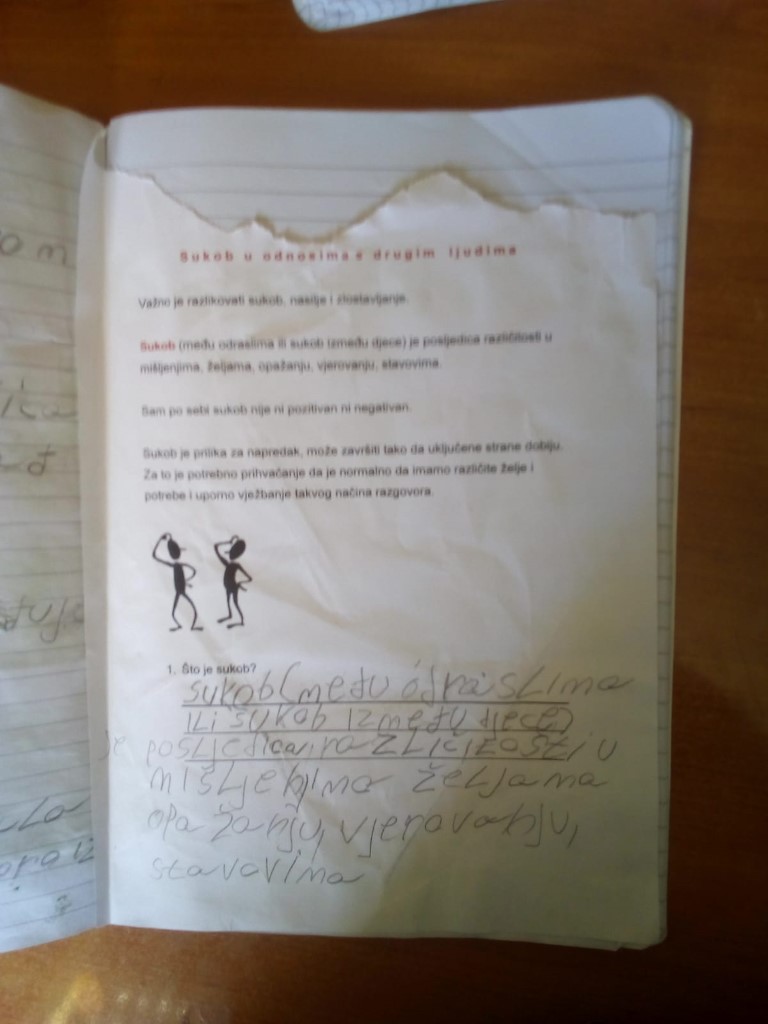 Sukob u odnosima s drugim ljudima
Važno je razlikovati sukob, nasilje i zlostavljanje.
Sukob (među odraslima ili sukob između djece) je posljedica različitosti u
mišljenjima, željama, opažanju, vjerovanju, stavovima.
Sam po sebi sukob nije ni pozitivan ni negativan.
Sukob je prilika za napredak, može završiti tako da uključene strane dobiju.
Za to je potrebno prihvaćanje da je normalno da imamo različite želje i
potrebe i uporno vježbanje takvog načina razgovora.
1. Što je sukob?
sukob (među odraslima
ili sukob između djece)
je posljedica različitosti u
mišljenjima željama
opažanju, vjerovanju,
stavovima